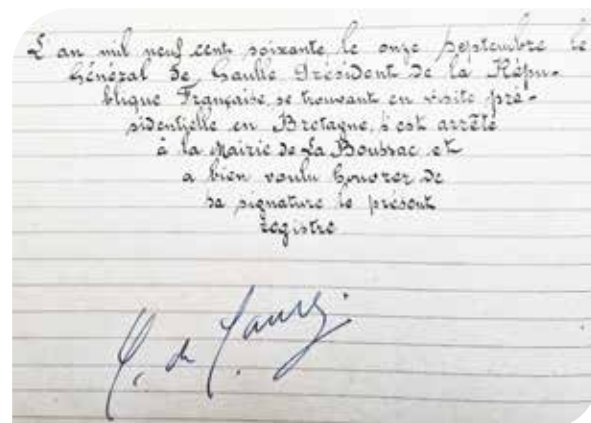 L'an mil neuf cent soixante le onze septembre le
Général de Gaulle Président de la Répu-
blique Française, se trouvant en visite pré-
sidentielle en Bretagne, s'est arrêté
à la Mairie de La Boussac et
a bien voulu honorer de
sa signature le présent
registre
C. de Gaulle